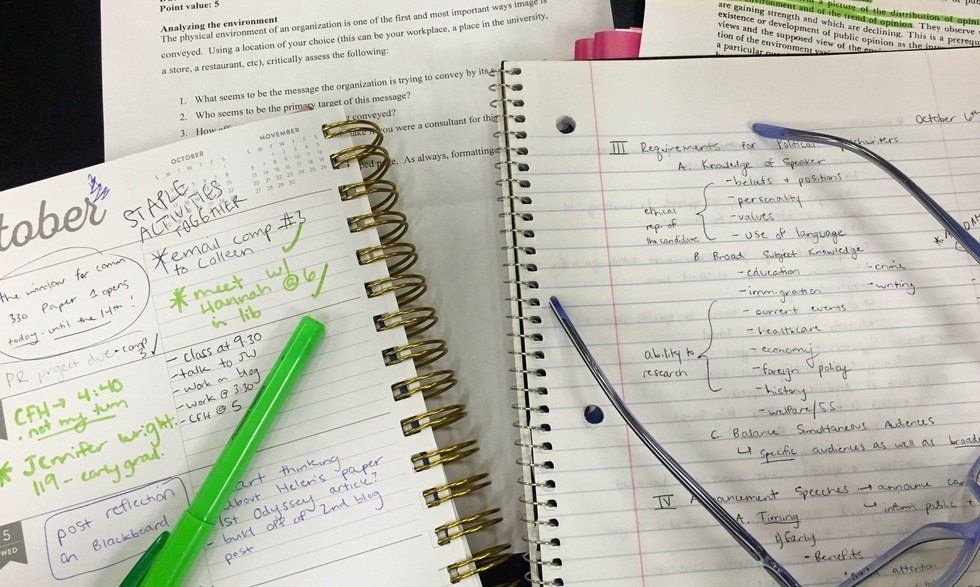 Point value: 5
Analyzing the environment
The physical environment of an organization is one of the first and most important ways image is
conveyed. Using a location of your choice (this can be your workplace, a place in the university,
a store, a restaurant, etc), critically assess the following:
1. What seems to be the message the organization is trying to convey by its
2. Who seems to be the primary target of this message?
3. How
conveyed?
you were a consultant for this
As always, formatting
a picture of the distribution of
environment and of the trend of opinion. They observe
are gaining strength and which are declining. This is a
existence or development of public opinion as the
views and the supposed view of the
tion of the environment
a particular
OCTOBER
NOVEMBER
tober
STAPLE
ACTIVITIES
TOGETHER
*email comp #3
to Colleen
* meet w/
Hannah @ 6
in lib
the window for comm
330 Paper 1 opens
today. until the 14th!
PR project due - comp
3.
CFH → 4:40
. not my turn
* Jennifer Wright.
119 - early grad.
- class at 9:30
- talk to JW
- work on blog
- work @ 3:30
- CFH @ 5
5
WED
post reflection
on Blackboard
art thinking
about Helen's paper
1st Odyssey article?
- build off of 2nd blog
post
October 6th
III Requirements for Political
A. Knowledge of Speaker
- beliefs + positions
- personality
- values
- use of language
ethical
rep. of
the candidate
B. Broad Subject Knowledge
- education
- crime
- immigration
- writing
- current events
- healthcare
- economy
- foreign policy
- history
- welfare/S.S.
ability to
research
C. Balance Simultaneous Audiences
↳ specific audiences as well as broad
IV Announcement Speeches → announce
↳ inform public +
A. Timing
Early
- Benefits
attention